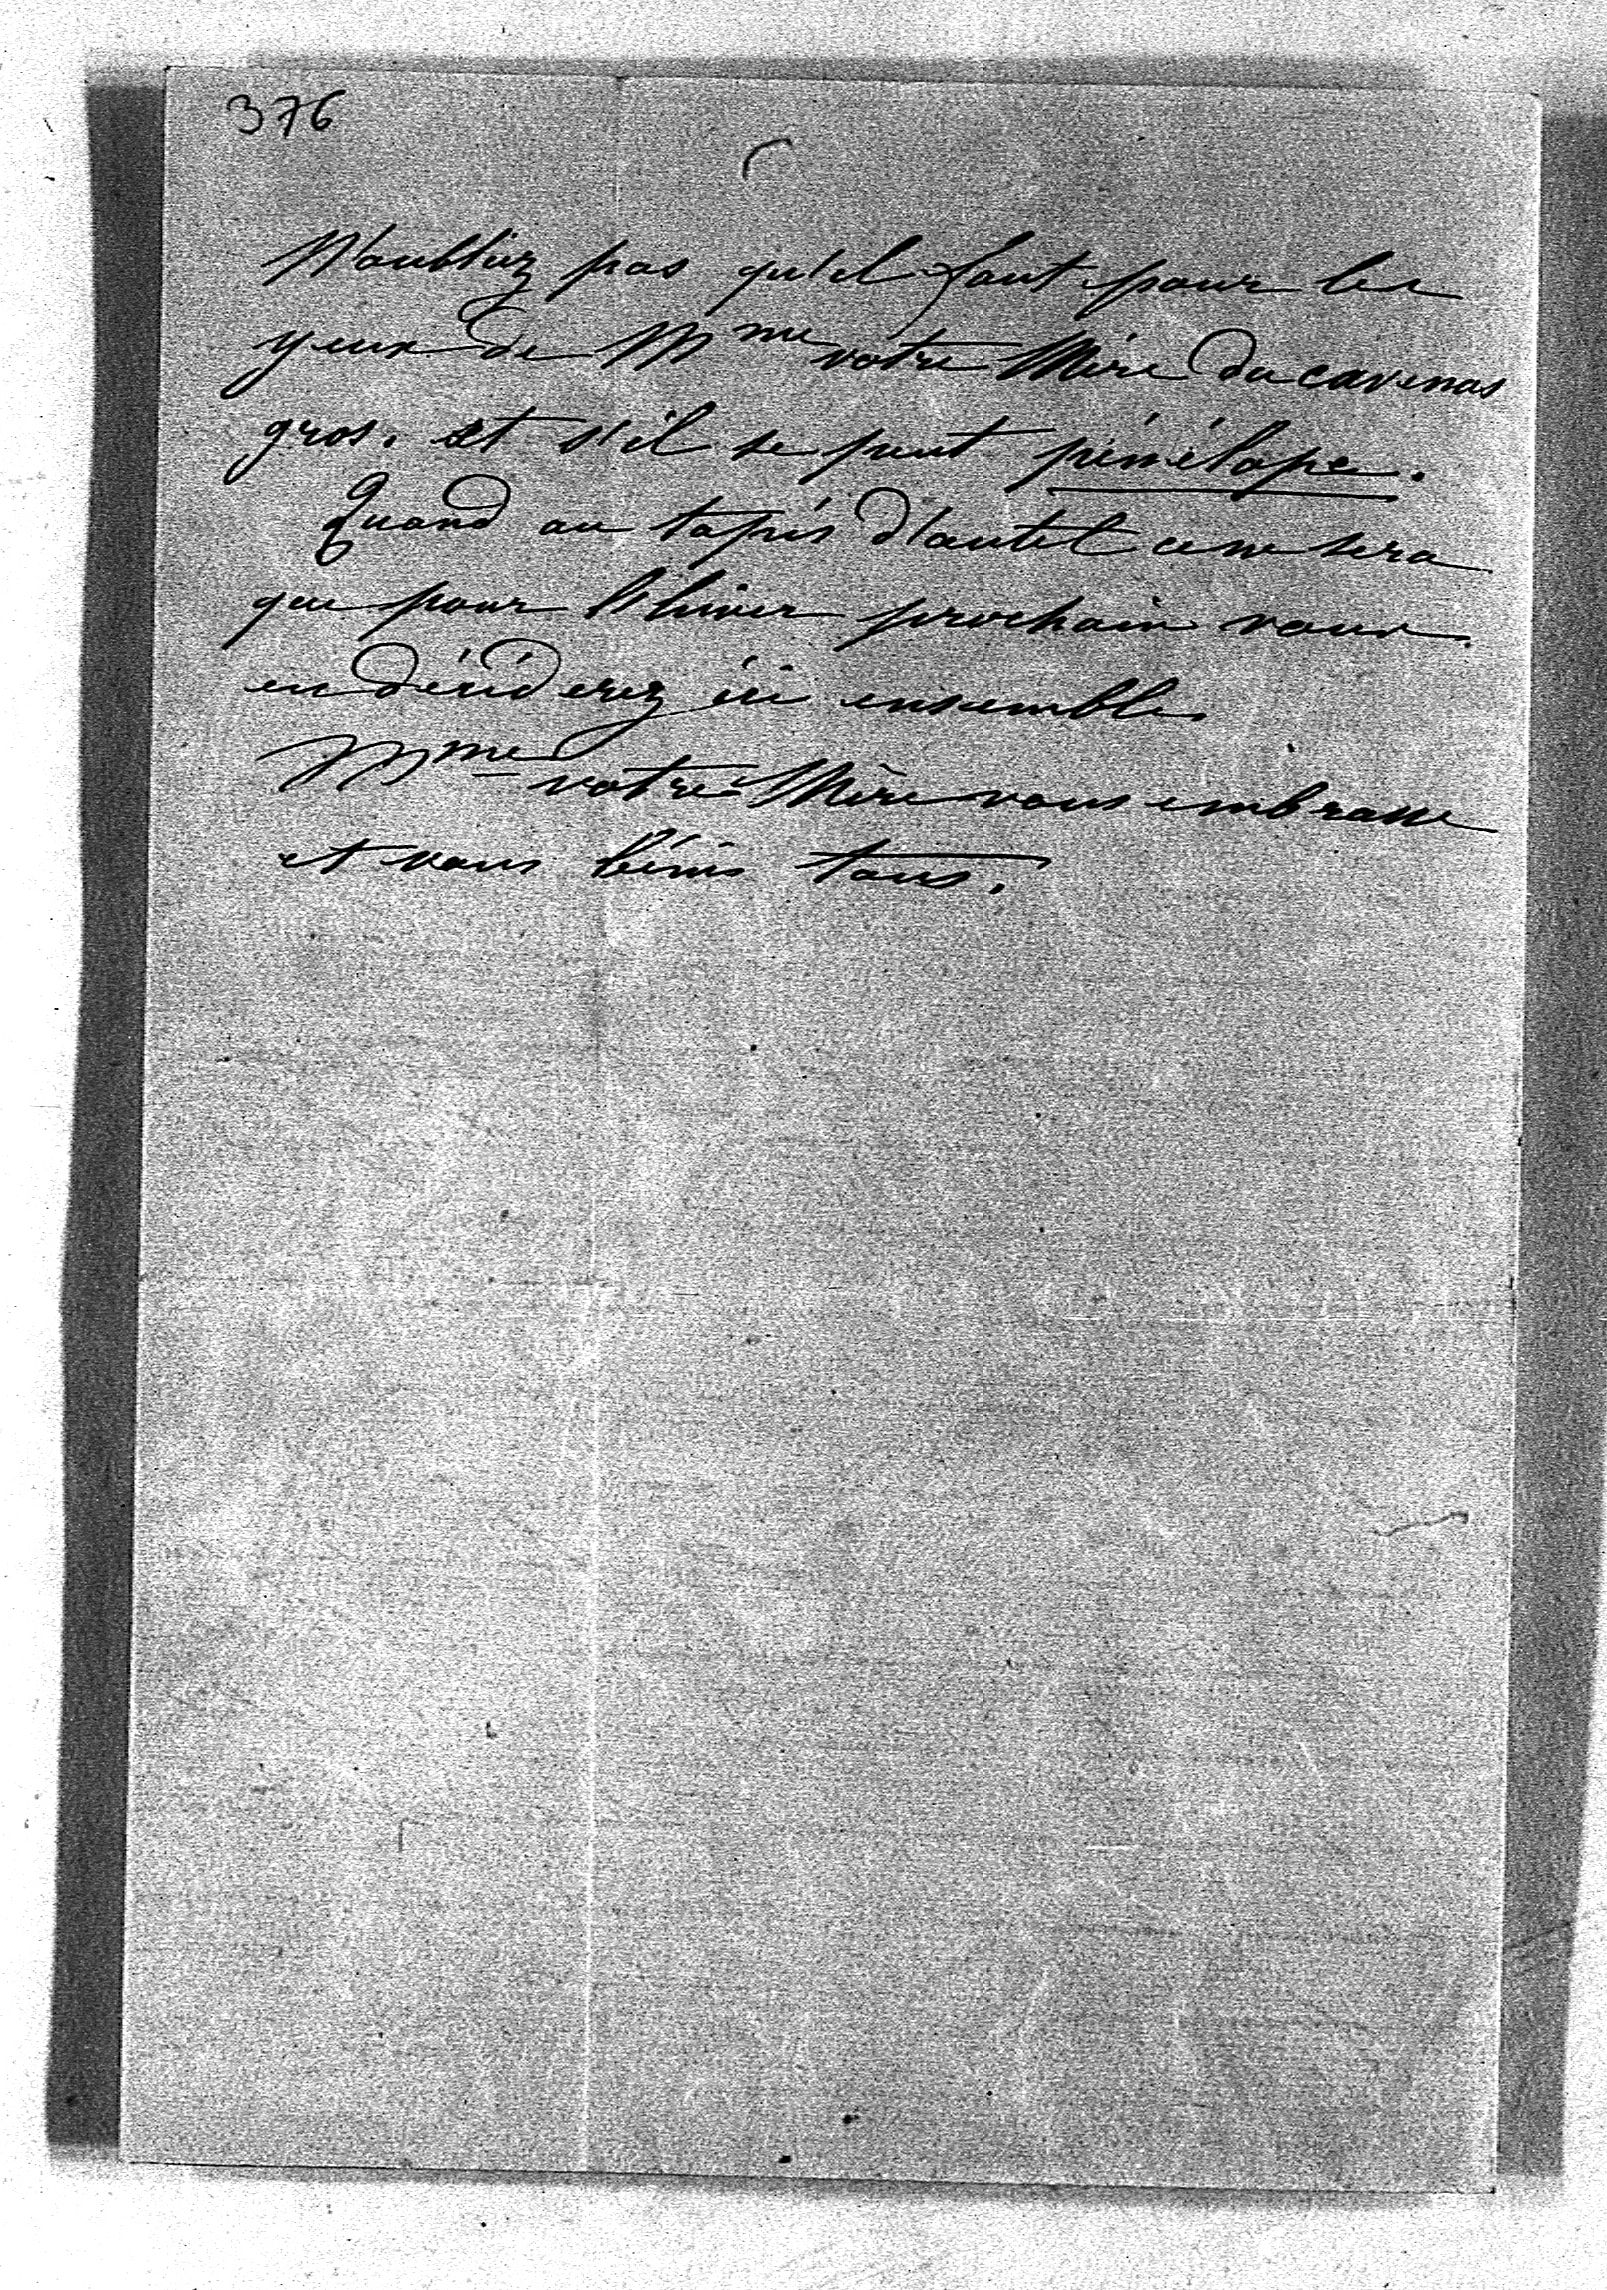 376
N'oubliez pas qu'il faut pour les
yeux de Mme votre Mère du cavenas
gros. et s'il se peut pénélope.
Quand au tapis d'autel ce ne sera
que pour l'hiver prochain vous
en déciderez ici ensemble.
Mme votre Mère vous embrasse
et vous bénis tous.